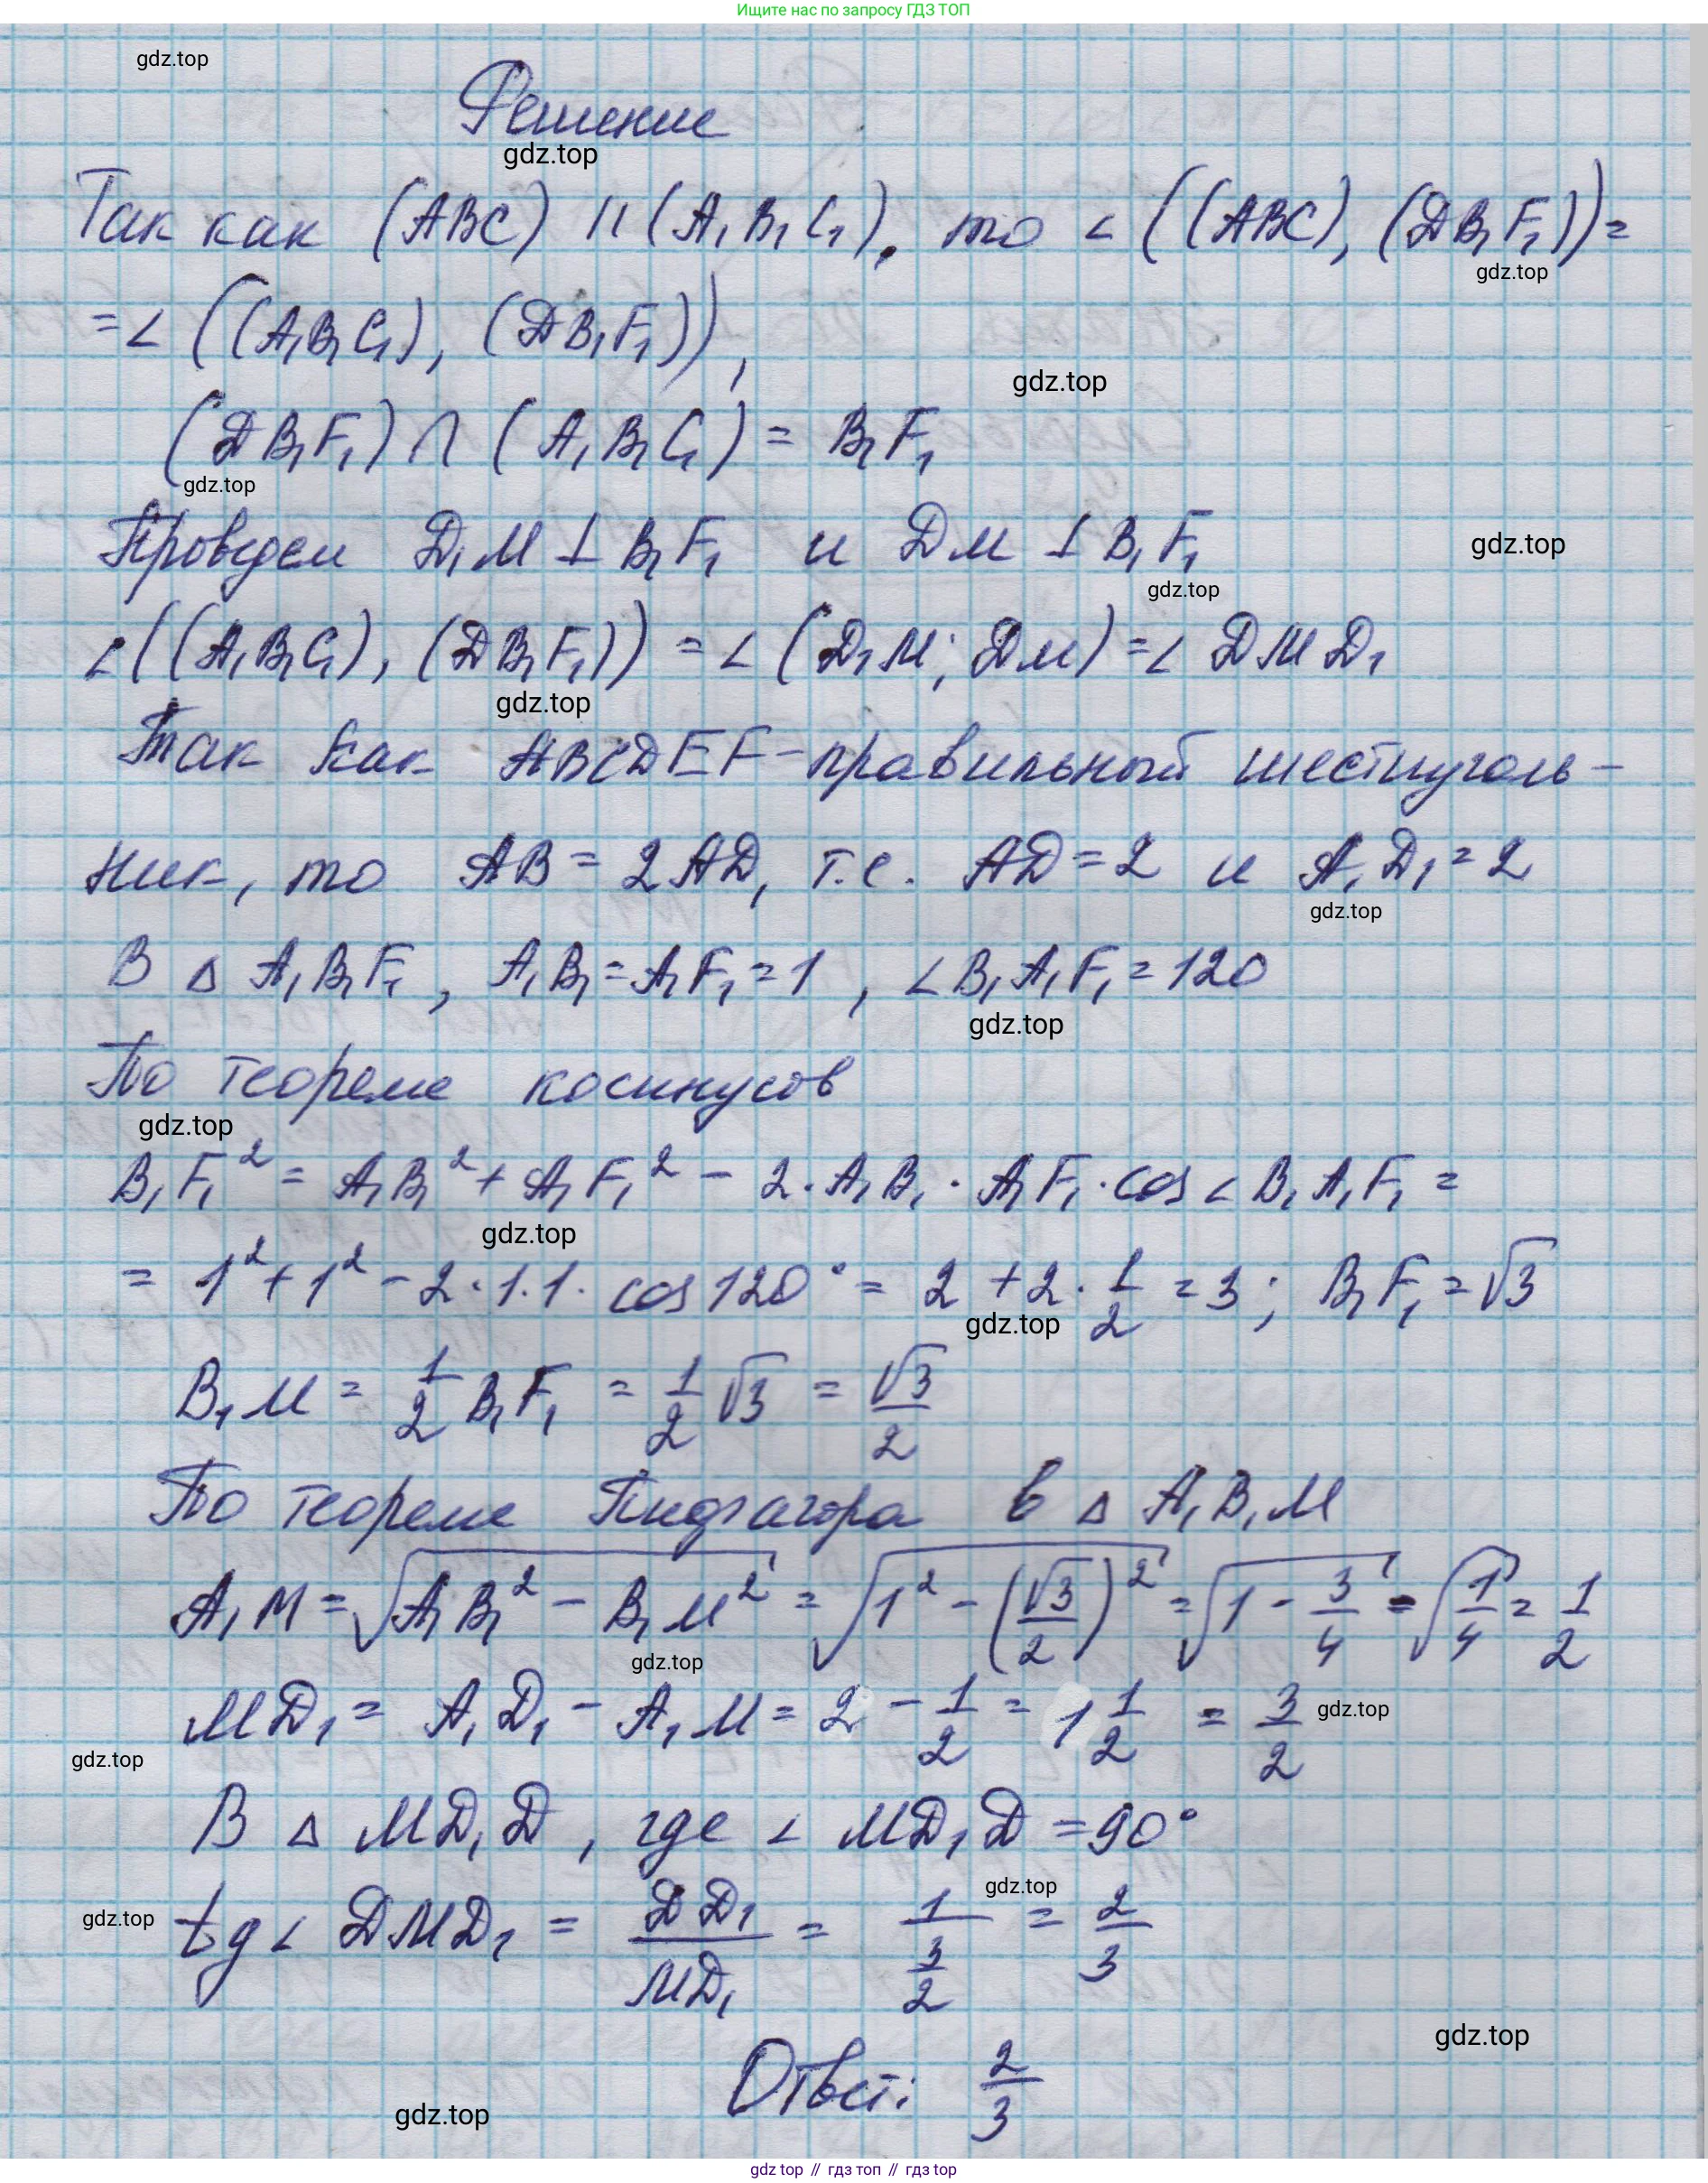 Ищите нас по запросу ГДЗ ТОП
gdz.top
Решение
gdz.top
Так как (ABC) || (A₁B₁C₁), то ∠((ABC), (DB₁F₁))=
gdz.top
=∠((A₁B₁C₁), (DB₁F₁)),
gdz.top
(DB₁F₁)∩(A₁B₁C₁)= B₁F₁
gdz.top
Проведем D₁M⊥B₁F₁ и DM⊥B₁F₁
gdz.top
gdz.top
∠((A₁B₁C₁), (DB₁F₁))=∠(D₁M; DM)=∠DMD₁
gdz.top
Так как ABCDEF-правильный шестиуголь-
ник, то AB=2AD, т.е. AD=2 и A₁D₁=2
gdz.top
В △ A₁B₁F₁, A₁B₁=A₁F₁=1, ∠B₁A₁F₁=120
gdz.top
По теореме косинусов
gdz.top
B₁F₁²= A₁B₁²+A₁F₁²-2·A₁B₁·A₁F₁·cos∠B₁A₁F₁=
gdz.top
= 1²+1²-2·1·1·cos120°=2+2·1/2=3; B₁F₁=√3
gdz.top
B₁M=1/2B₁F₁=1/2√3=√3/2
По теореме Пифагора в △A₁B₁M
A₁M=√(A₁B₁²-B₁M²)=√(1²-(√3/2)²)=√(1-3/4)=√(1/4)=1/2
gdz.top
MD₁= A₁D₁-A₁M=2-1/2=1 1/2=3/2
gdz.top
gdz.top
В △MD₁D, где ∠MD₁D=90°
gdz.top
gdz.top
tg∠DMD₁=DD₁/MD₁=1/(3/2)=2/3
gdz.top
Ответ: 2/3
gdz.top
gdz top // гдз топ // гдз top